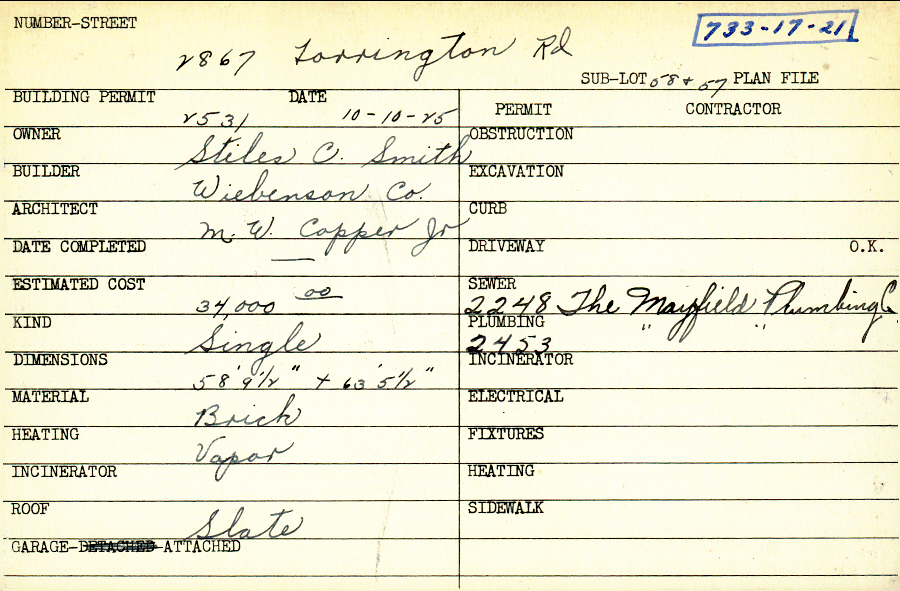 NUMBER-STREET
733-17-21
2867 Torrington Rd
SUB-LOT 58 + 57 PLAN FILE
BUILDING PERMIT 2531 DATE 10-10-25
PERMIT CONTRACTOR
OWNER Stiles C. Smith
OBSTRUCTION
BUILDER Wiebenson Co.
EXCAVATION
ARCHITECT M. W. Copper Jr
CURB
DATE COMPLETED —
DRIVEWAY O.K.
ESTIMATED COST 34,000 00
SEWER 2248 The Mayfield Plumbing Co
KIND Single
PLUMBING 2453 " "
DIMENSIONS 58'9½" + 63'5½"
INCINERATOR
MATERIAL Brick
ELECTRICAL
HEATING Vapor
FIXTURES
INCINERATOR
HEATING
ROOF Slate
SIDEWALK
GARAGE-DETACHED-ATTACHED